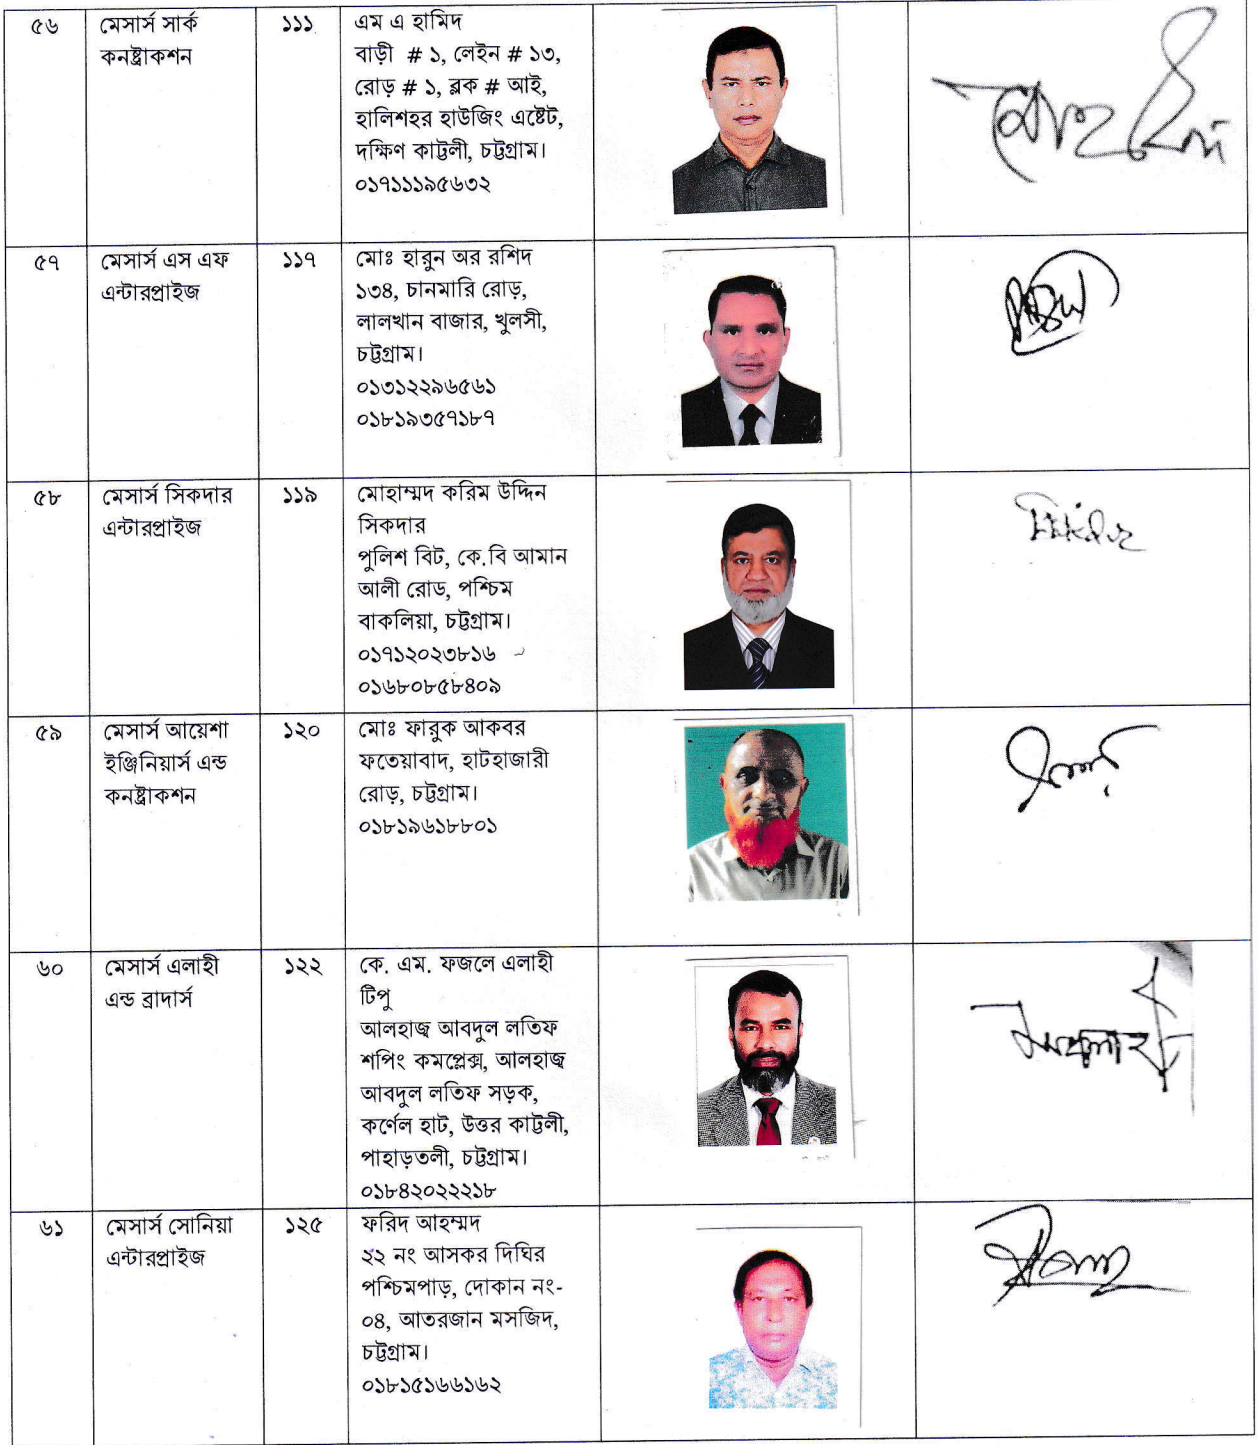 ৫৬
মেসার্স সার্ক
কনষ্ট্রাকশন
১১১
এম এ হামিদ
বাড়ী # ১, লেইন # ১৩,
রোড় # ১, ব্লক # আই,
হালিশহর হাউজিং এষ্টেট,
দক্ষিণ কাট্টলী, চট্টগ্রাম।
০১৭১১১৯৫৬৩২
৫৭
মেসার্স এস এফ
এন্টারপ্রাইজ
১১৭
মোঃ হারুন অর রশিদ
১৩৪, চানমারি রোড়,
লালখান বাজার, খুলসী,
চট্টগ্রাম।
০১৩১২২৯৬৫৬১
০১৮১৯৩৫৭১৮৭
৫৮
মেসার্স সিকদার
এন্টারপ্রাইজ
১১৯
মোহাম্মদ করিম উদ্দিন
সিকদার
পুলিশ বিট, কে.বি আমান
আলী রোড, পশ্চিম
বাকলিয়া, চট্টগ্রাম।
০১৭১২০২৩৮১৬
০১৬৮০৮৫৮৪০৯
৫৯
মেসার্স আয়েশা
ইঞ্জিনিয়ার্স এন্ড
কনষ্ট্রাকশন
১২০
মোঃ ফারুক আকবর
ফতেয়াবাদ, হাটহাজারী
রোড়, চট্টগ্রাম।
০১৮১৯৬১৮৮০১
৬০
মেসার্স এলাহী
এন্ড ব্রাদার্স
১২২
কে. এম. ফজলে এলাহী
টিপু
আলহাজ্ব আবদুল লতিফ
শপিং কমপ্লেক্স, আলহাজ্ব
আবদুল লতিফ সড়ক,
কর্ণেল হাট, উত্তর কাট্টলী,
পাহাড়তলী, চট্টগ্রাম।
০১৮৪২০২২২১৮
৬১
মেসার্স সোনিয়া
এন্টারপ্রাইজ
১২৫
ফরিদ আহম্মদ
২২ নং আসকর দিঘির
পশ্চিমপাড়, দোকান নং-
০৪, আতরজান মসজিদ,
চট্টগ্রাম।
০১৮১৫১৬৬১৬২